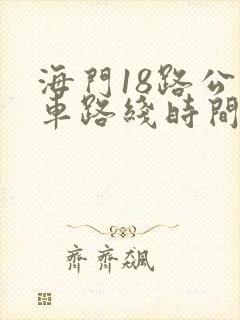 海門18路公
車路綫時間
齊齊飆